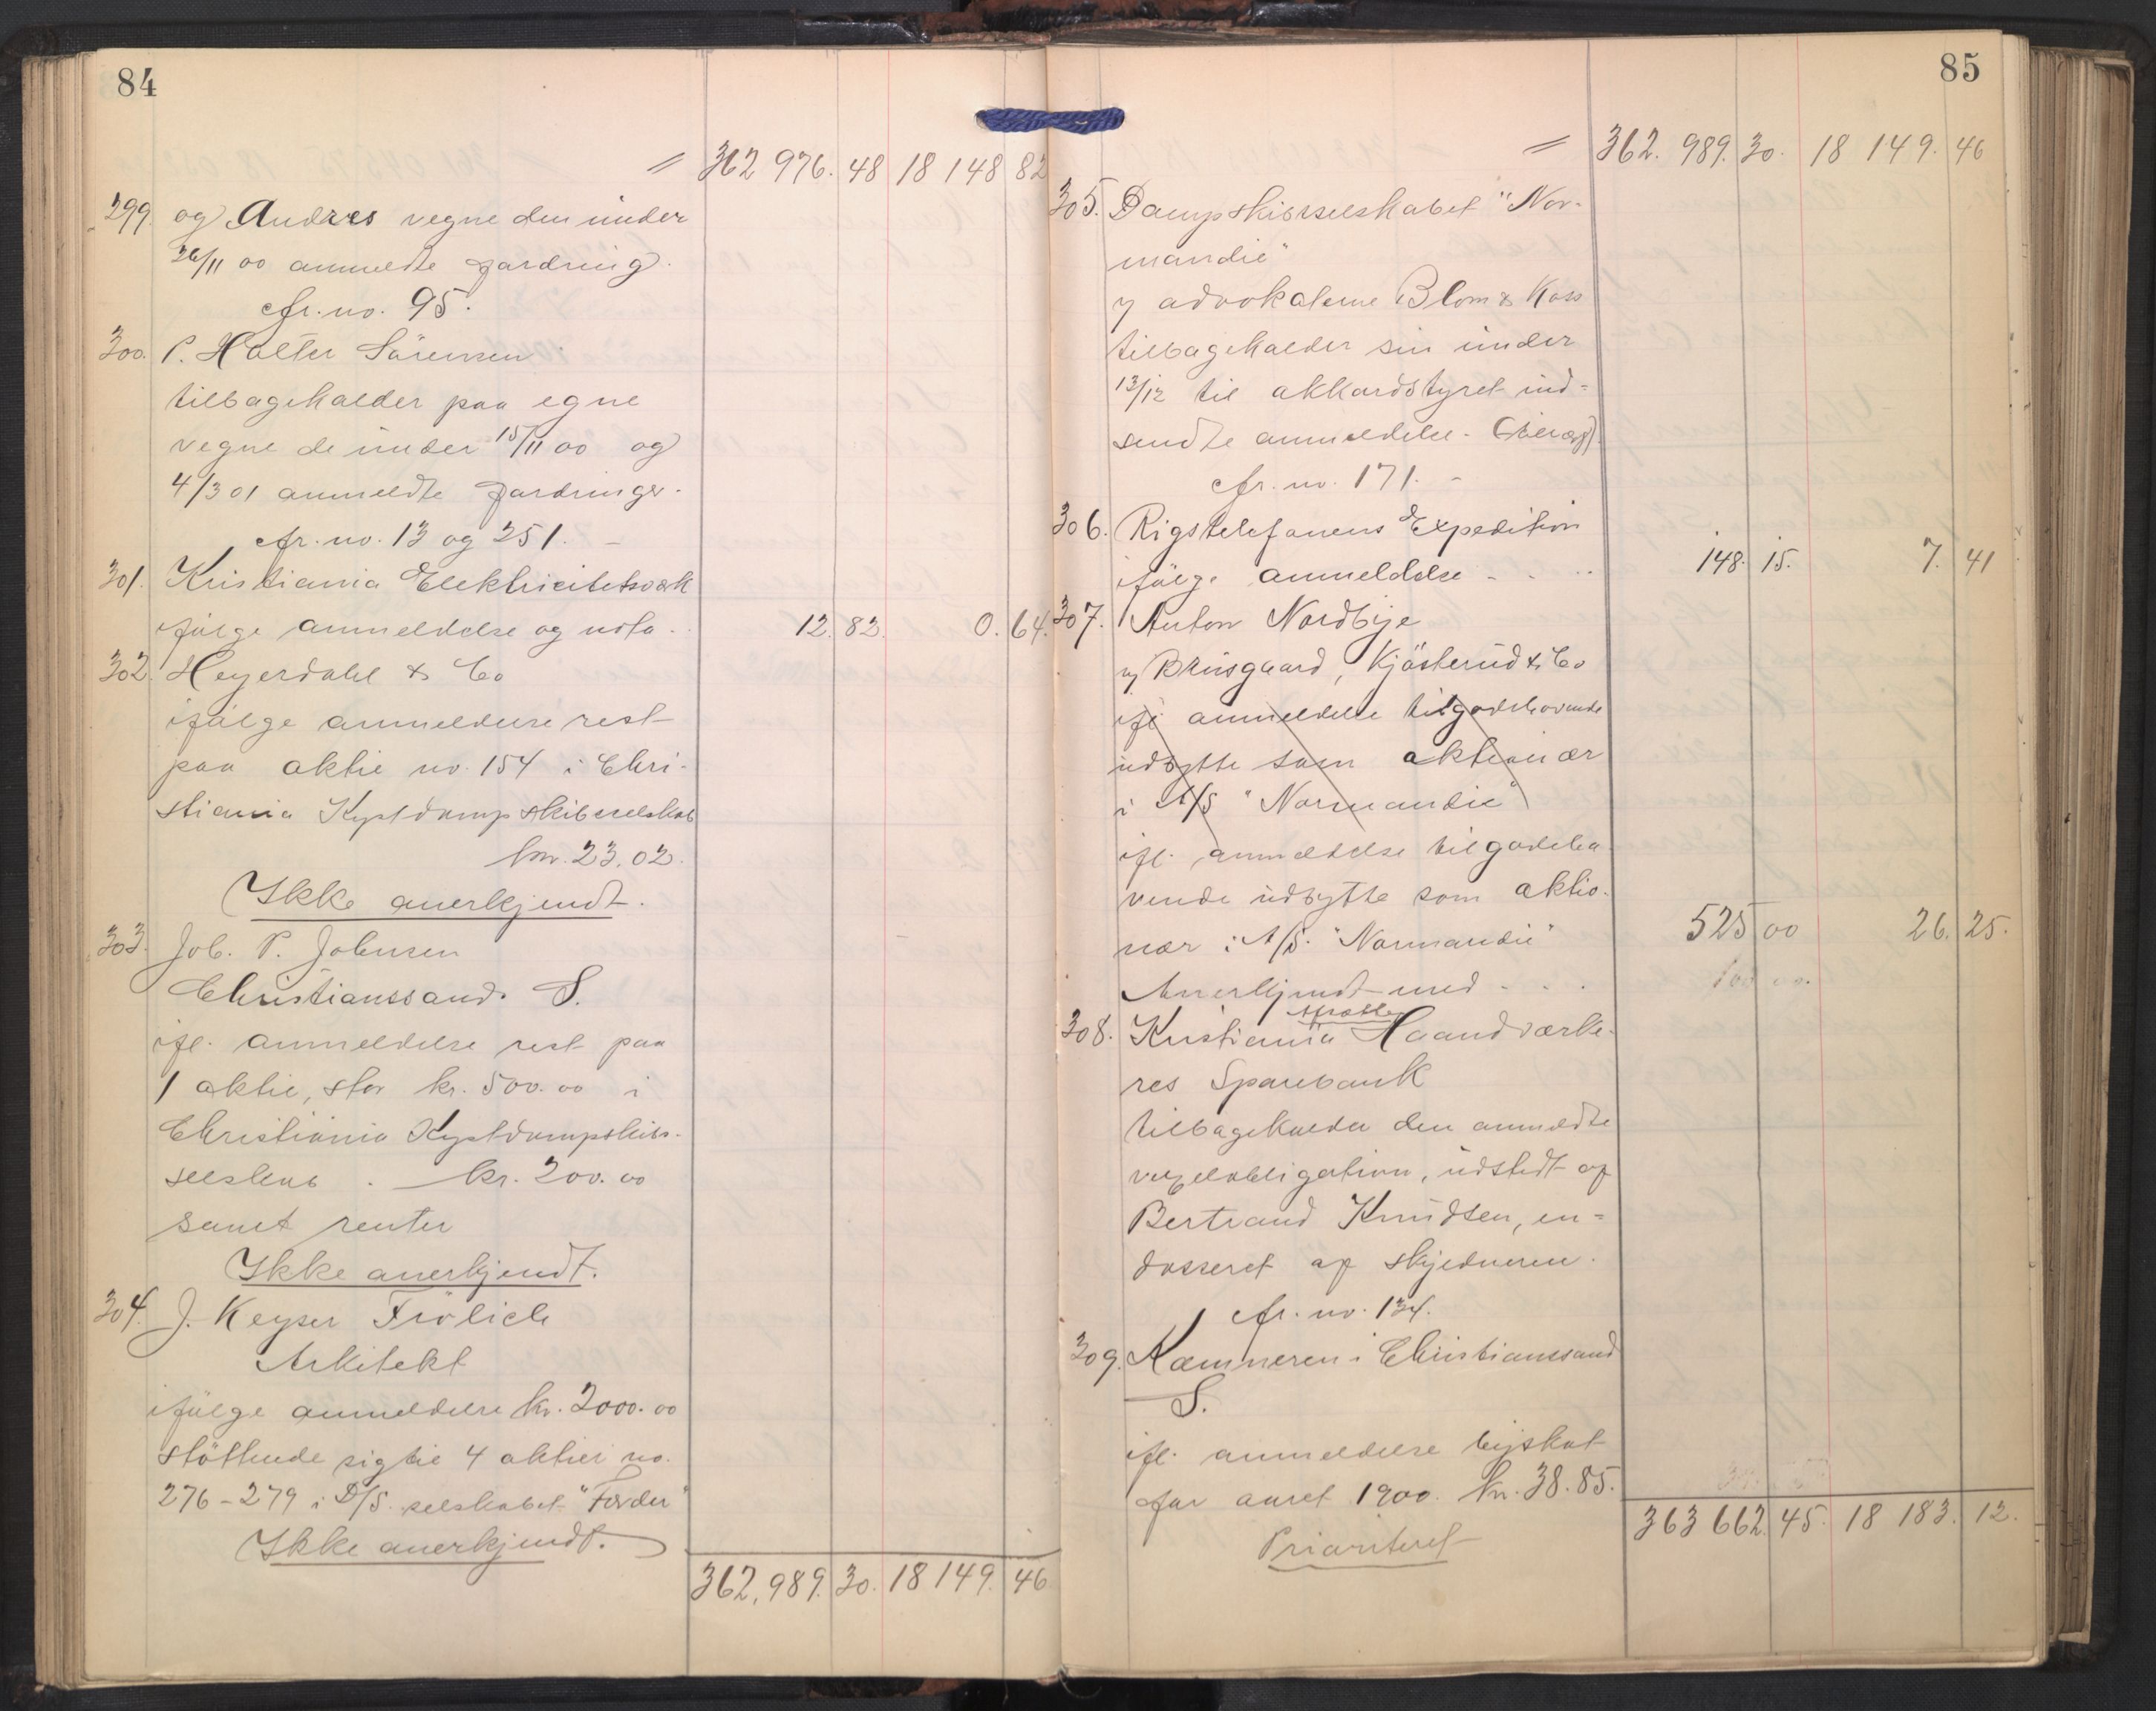 84
= 362 976. 48 18 148 82
299. og Andres vegne den under
26/11 00 anmeldte fordring.
cfr. no. 95.
300. P. Holter Sörensen
tilbagekalder paa egne
vegne de under 15/11 00 og
4/3 01 anmeldte fordringer.
cfr. no. 13 og 251. –
301. Kristiania Elektricitetsværk
ifölge anmeldelse og nota . 12. 82. 0. 64.
302. Heyerdahl & Co
ifölge anmeldelse rest
paa aktie no. 154 i Chri-
stiania Kystdampskibsselskab
kr. 23.02.
Ikke anerkjendt.
303. Joh. P. Johnsen
Christianssand. S.
ifl. anmeldelse rest paa
1 aktie, stor kr. 500.00 i
Christiania Kystdampskibs-
selskab . kr. 200.00
samt renter
Ikke anerkjendt.
304. J. Keyser Frölich
Arkitekt
ifölge anmeldelse kr. 2000.00
stöttende sig til 4 aktier no.
276–279 i D/S. selskabet "Færder"
Ikke anerkjendt.
362,989. 30. 18 149. 46
85
= 362. 989. 30. 18 149. 46
305. Dampskibsselskabet "Nor-
mandie"
v/ advokaterne Blom &
tilbagekalder sin under
13/12 til akkordstyret ind-
sendte anmeldelse.
cfr. no. 171. –
306. Rigstelefonens Expedition
ifölge anmeldelse - . .. 148. 15. 7. 41
307. Anton Nordbye
v/ Bruusgaard, Kjösterud & Co
ifl anmeldelse tilgodehavende
udbytte som aktionær
i A/S "Normandie"
ifl. anmeldelse tilgodeha
vende udbytte som aktio-
nær i A/S. "Normandie" 525 00 26. 25.
Anerkjendt med - . .
308. Kristiania Haandværke-
res Sparebank
tilbagekalder den anmeldte
vexelobligation, udstedt af
Bertrand Knudsen, en-
dosseret af skyldneren.
cfr. no. 134.
309. Kæmneren i Christianssand
S.
ifl. anmeldelse byskat
for aaret 1900. kr. 38.85.
Prioriteret
363 662. 45. 18 183. 12.